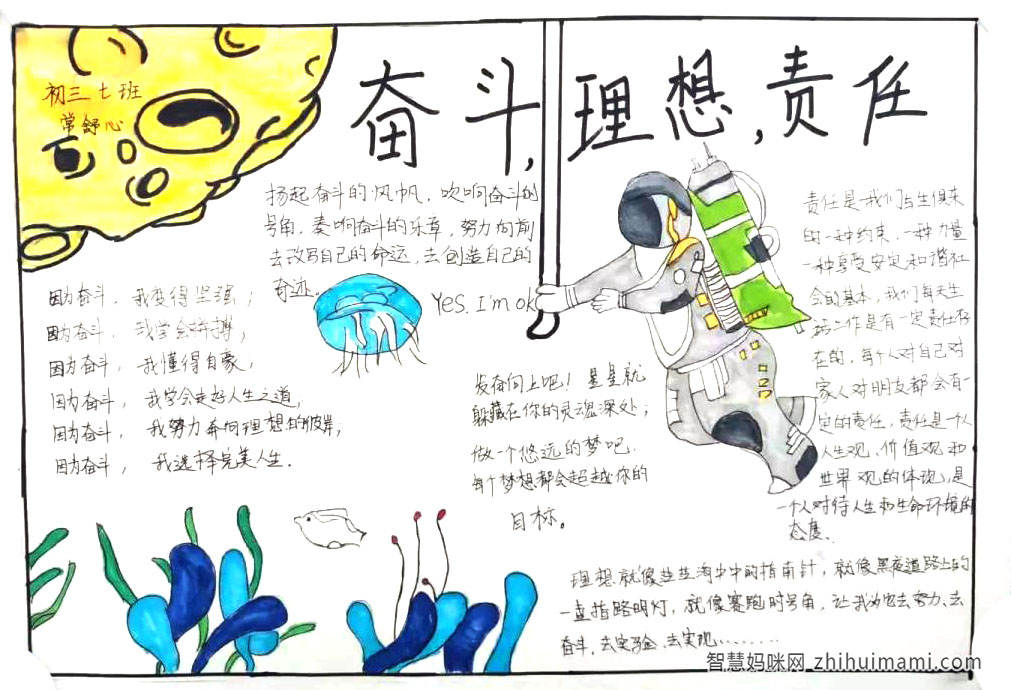 奋斗,理想,责任
初三七班
常舒心
扬起奋斗的风帆，吹响奋斗的
号角，奏响奋斗的乐章，努力向前
去改写自己的命运，去创造自己的
奇迹。
因为奋斗，我变得坚强；
因为奋斗，我学会拼搏；
因为奋斗，我懂得自豪；
因为奋斗，我学会走好人生之道；
因为奋斗，我努力奔向理想的彼岸；
因为奋斗，我选择完美人生.
Yes. I'm ok
发奋向上吧！星星就
躲藏在你的灵魂深处；
做一个悠远的梦吧.
每个梦想都会超越你的
目标。
责任是我们与生俱来
的一种约束，一种力量
一种享受安定和谐社
会的基本，我们每天生
活工作是有一定责任存
在的，每个人对自己对
家人对朋友都会有一
定的责任，责任是一个人
人生观、价值观和
世界观的体现，是
一个人对待人生和生命环境的
态度.
理想就像茫茫海中中的指南针，就像黑夜道路上的
一盏指路明灯，就像赛跑时号角，让我为也去努力、去
奋斗，去实验、去实现........
智慧妈咪网 zhihuimami.com